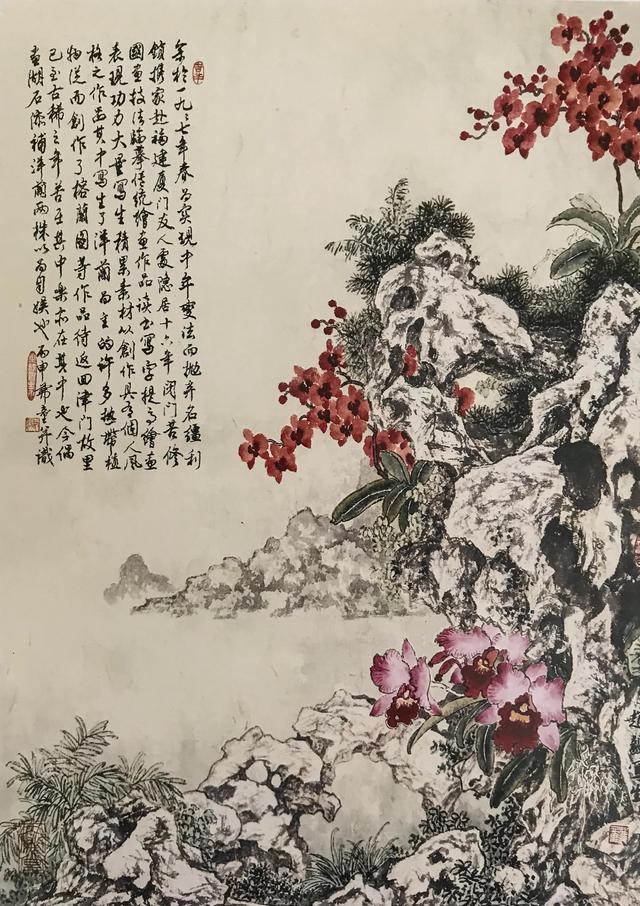 余於一九八七年春為實現中年變法而拋弃名韁利
鎖携家赴福建厦门友人處隐居十六年闭门苦修
國畫技法临摹传统繪畫作品读书寫字提高繪畫
表現功力大量寫生積累素材以創作具有個人风
格之作品其中寫生了洋蘭為主的许多热带植
物從而創作了榕蘭圖等作品待返回津门故里
已至古稀之年苦在其中樂亦在其中也今偶
畫湖石添補洋蘭两株以為自娱也丙申